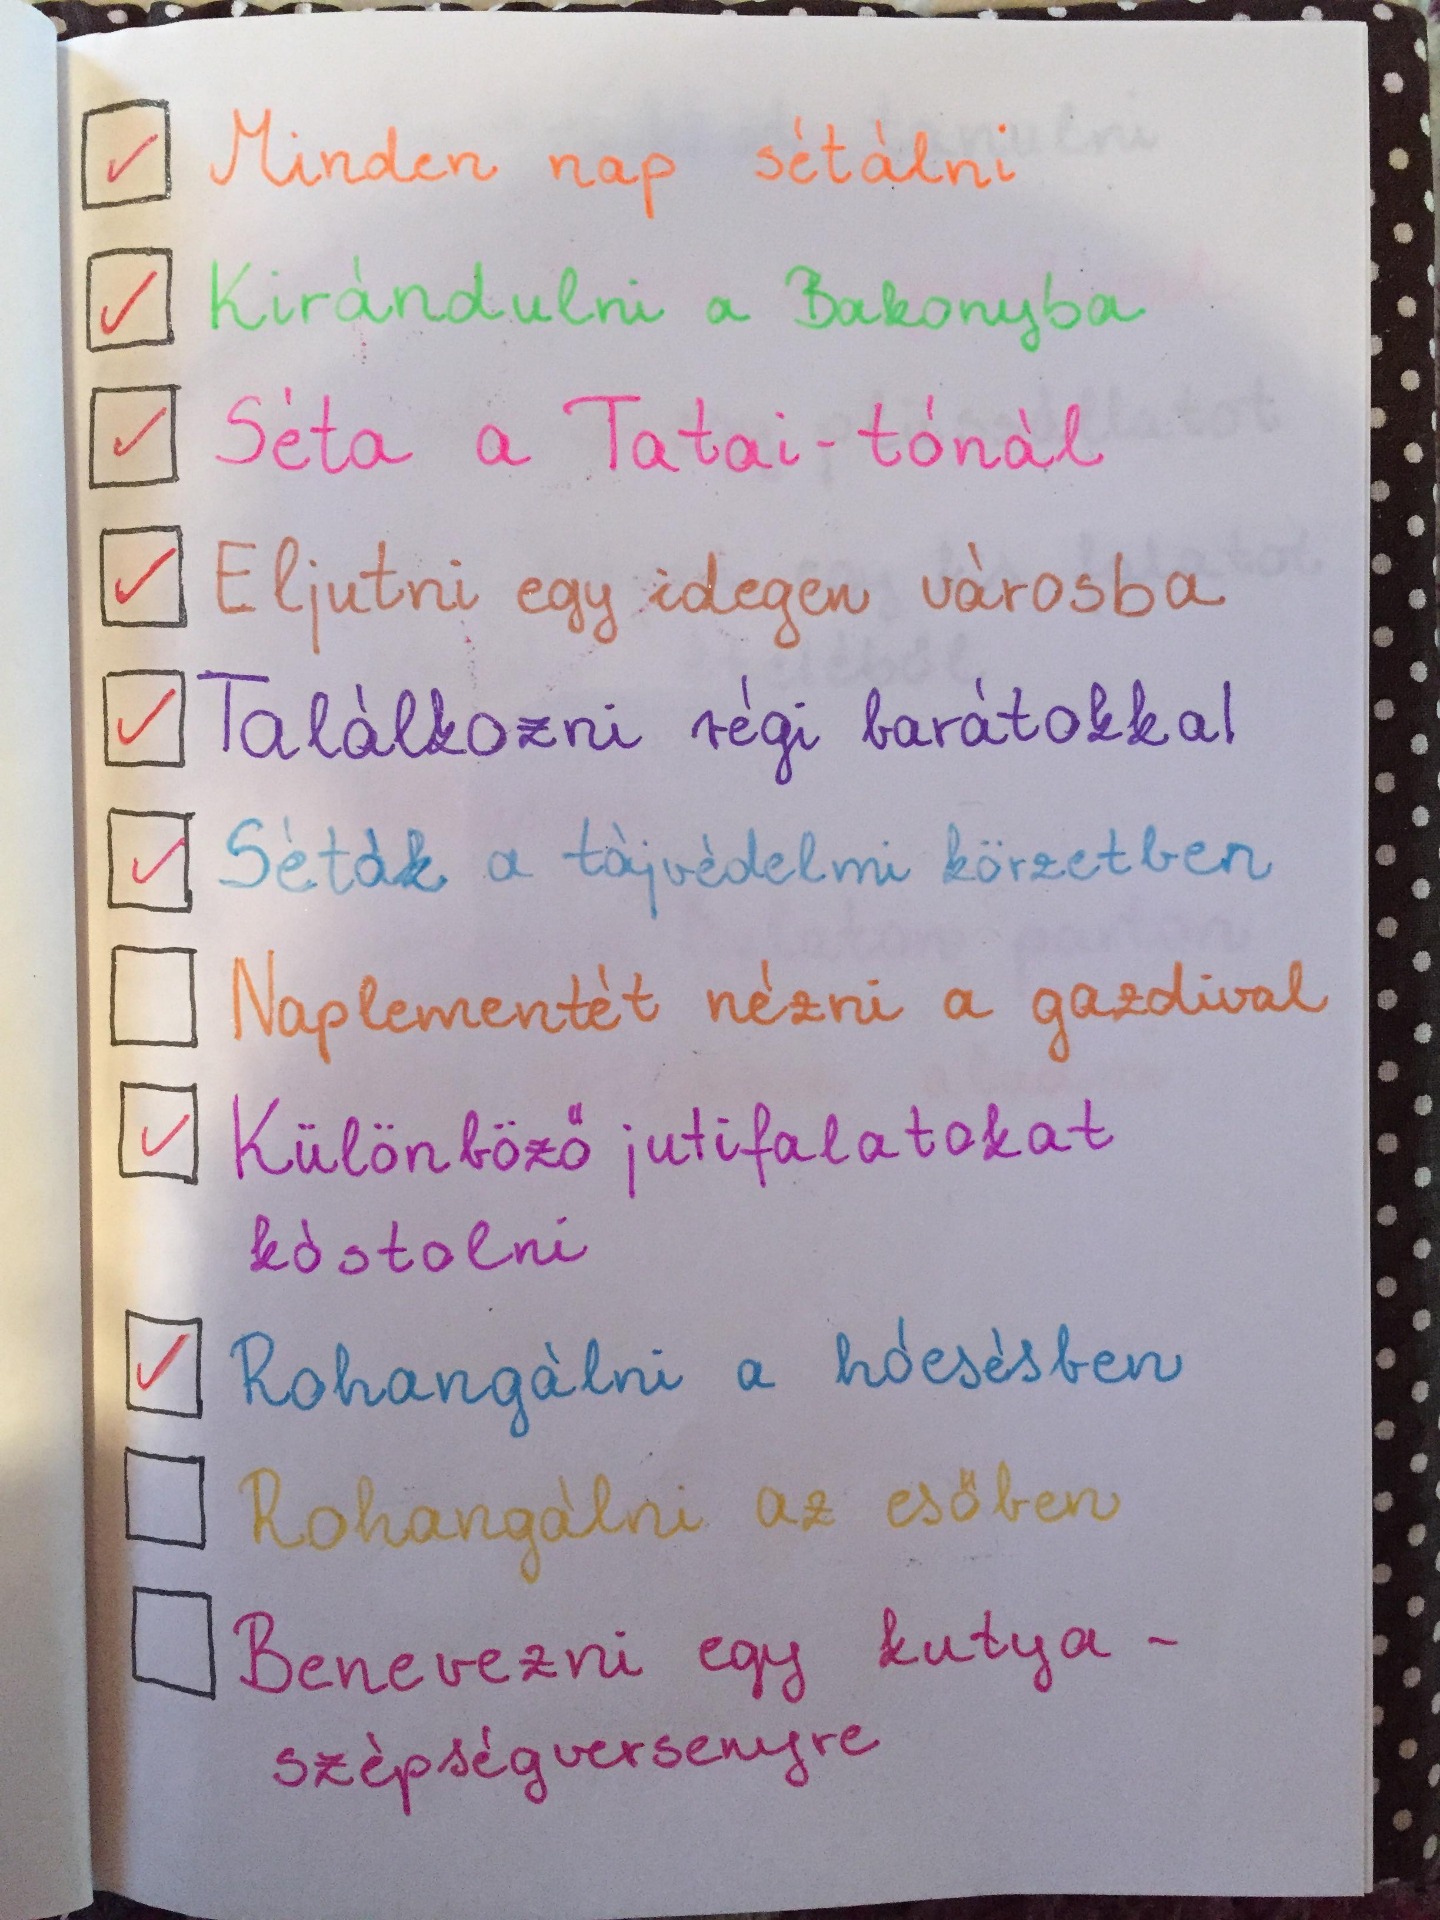 Minden nap sétálni
Kirándulni a Bakonyba
Séta a Tatai-tónál
Eljutni egy idegen városba
Találkozni régi barátokkal
Séták a tájvédelmi körzetben
Naplementét nézni a gazdival
Különböző jutifalatokat
kóstolni
Rohangálni a hóesésben
Rohangálni az esőben
Benevezni egy kutya-
szépségversenyre